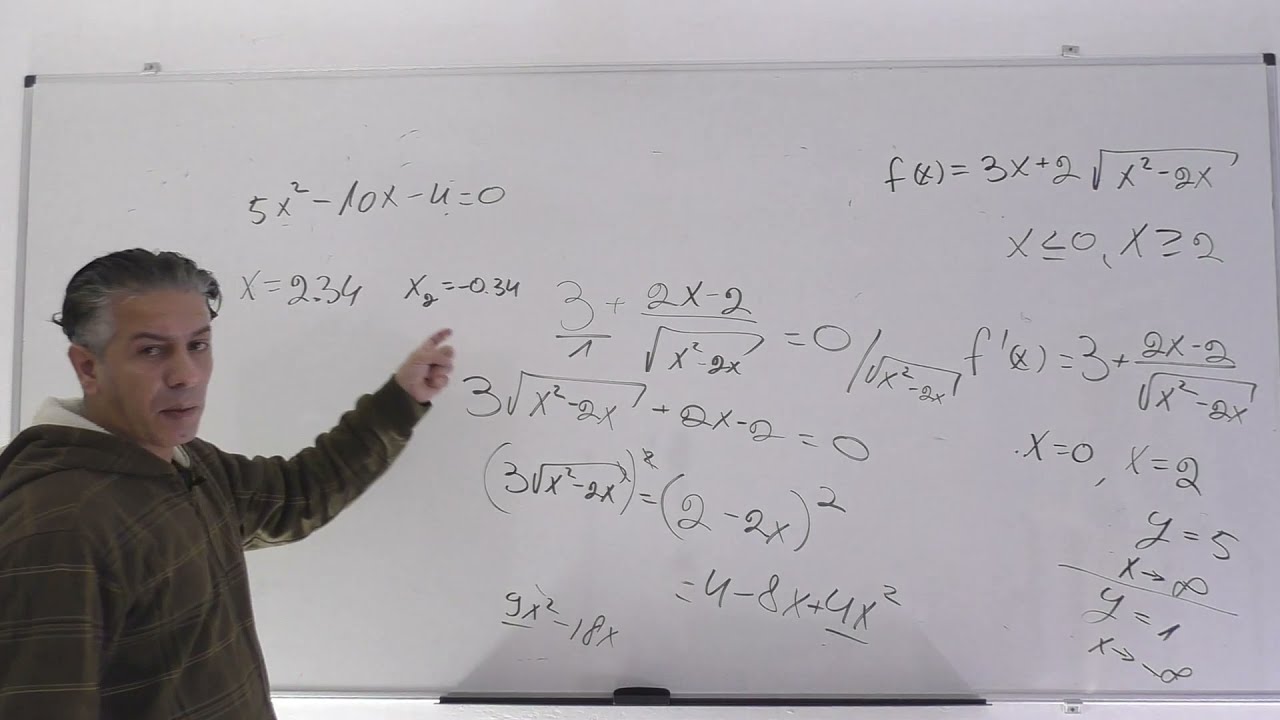 5x² - 10x - 4 = 0
x = 2.34 x₂ = -0.34
3/1 + (2x-2)/√(x²-2x) = 0 / √(x²-2x)
3√(x²-2x) + 2x - 2 = 0
(3√(x²-2x))² = (2 - 2x)²
= 4 - 8x + 4x²
9x² - 18x
f(x) = 3x + 2√(x²-2x)
x ≤ 0, x ≥ 2
f'(x) = 3 + (2x-2)/√(x²-2x)
x = 0, x = 2
y = 5
x → ∞
y = 1
x → -∞